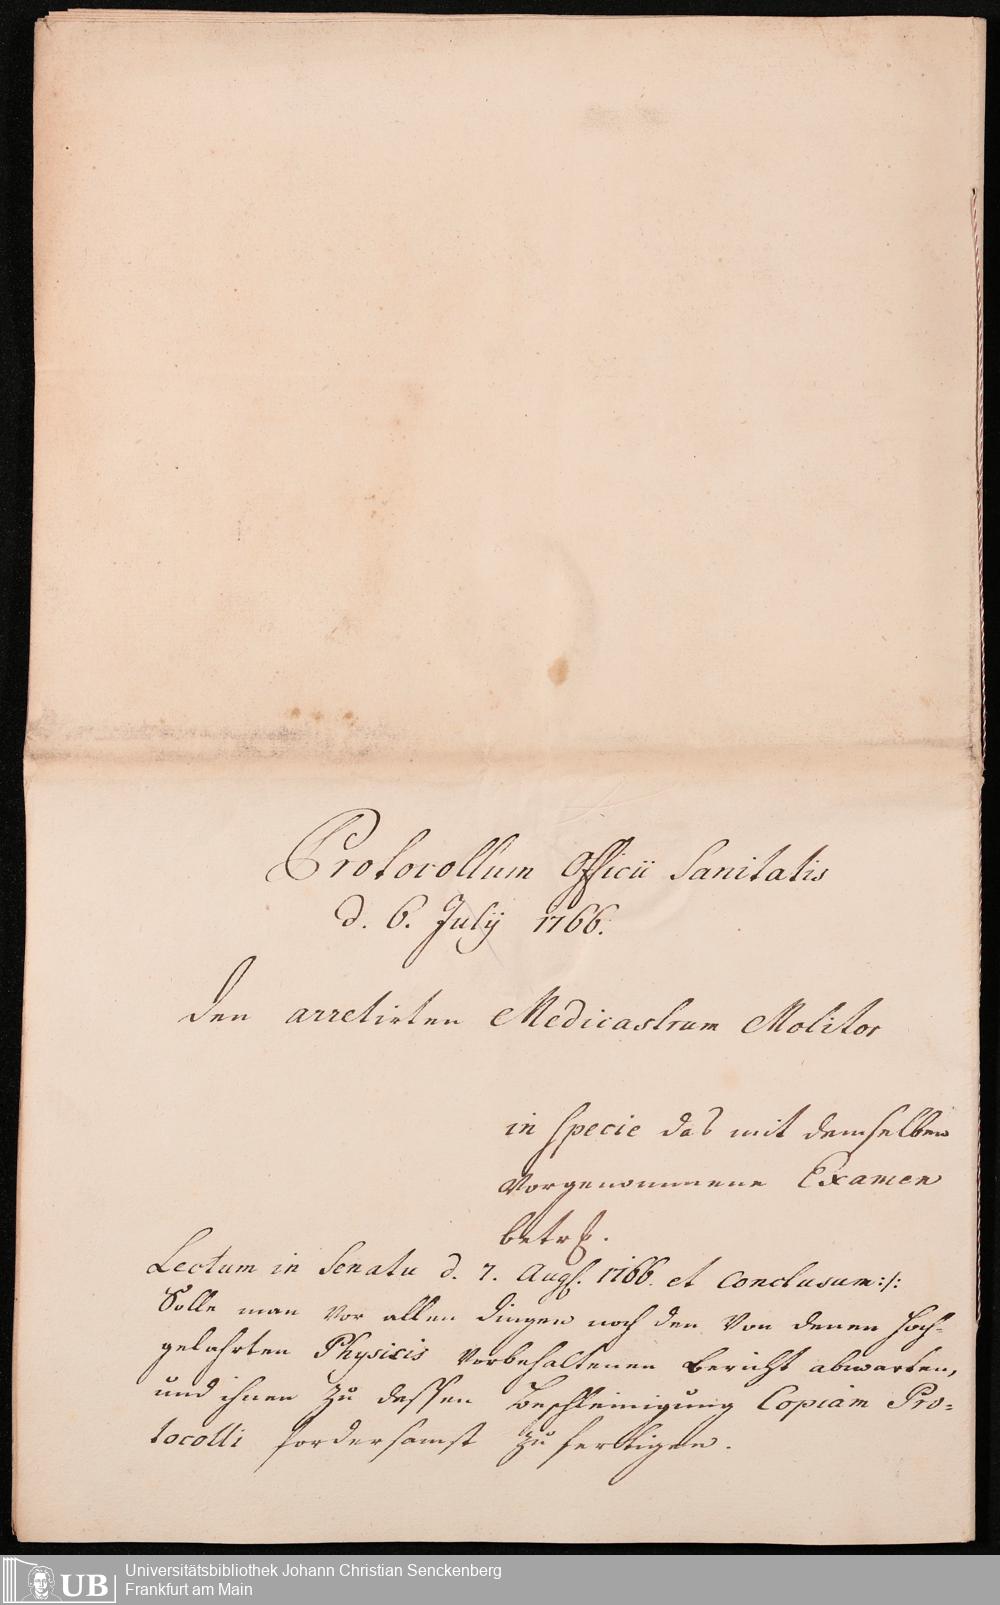 Protocollum Officii Sanitatis
d. 6. Julij 1766.
den arretirten Medicastrum Molitor
in specie das mit demselben
vorgenommene Examen
betrf.
Lectum in Senatu d. 7. Augs. 1766. et conclusum:/:
Solle man vor allen Dingen noch den von denen Hoch-
gelahrten Physicis vorbehaltenen Bericht abwarten,
und ihnen zu dessen Beschleinigung Copiam Pro=
tocolli fordersamst zu fertigen.
UB
Universitätsbibliothek Johann Christian Senckenberg
Frankfurt am Main